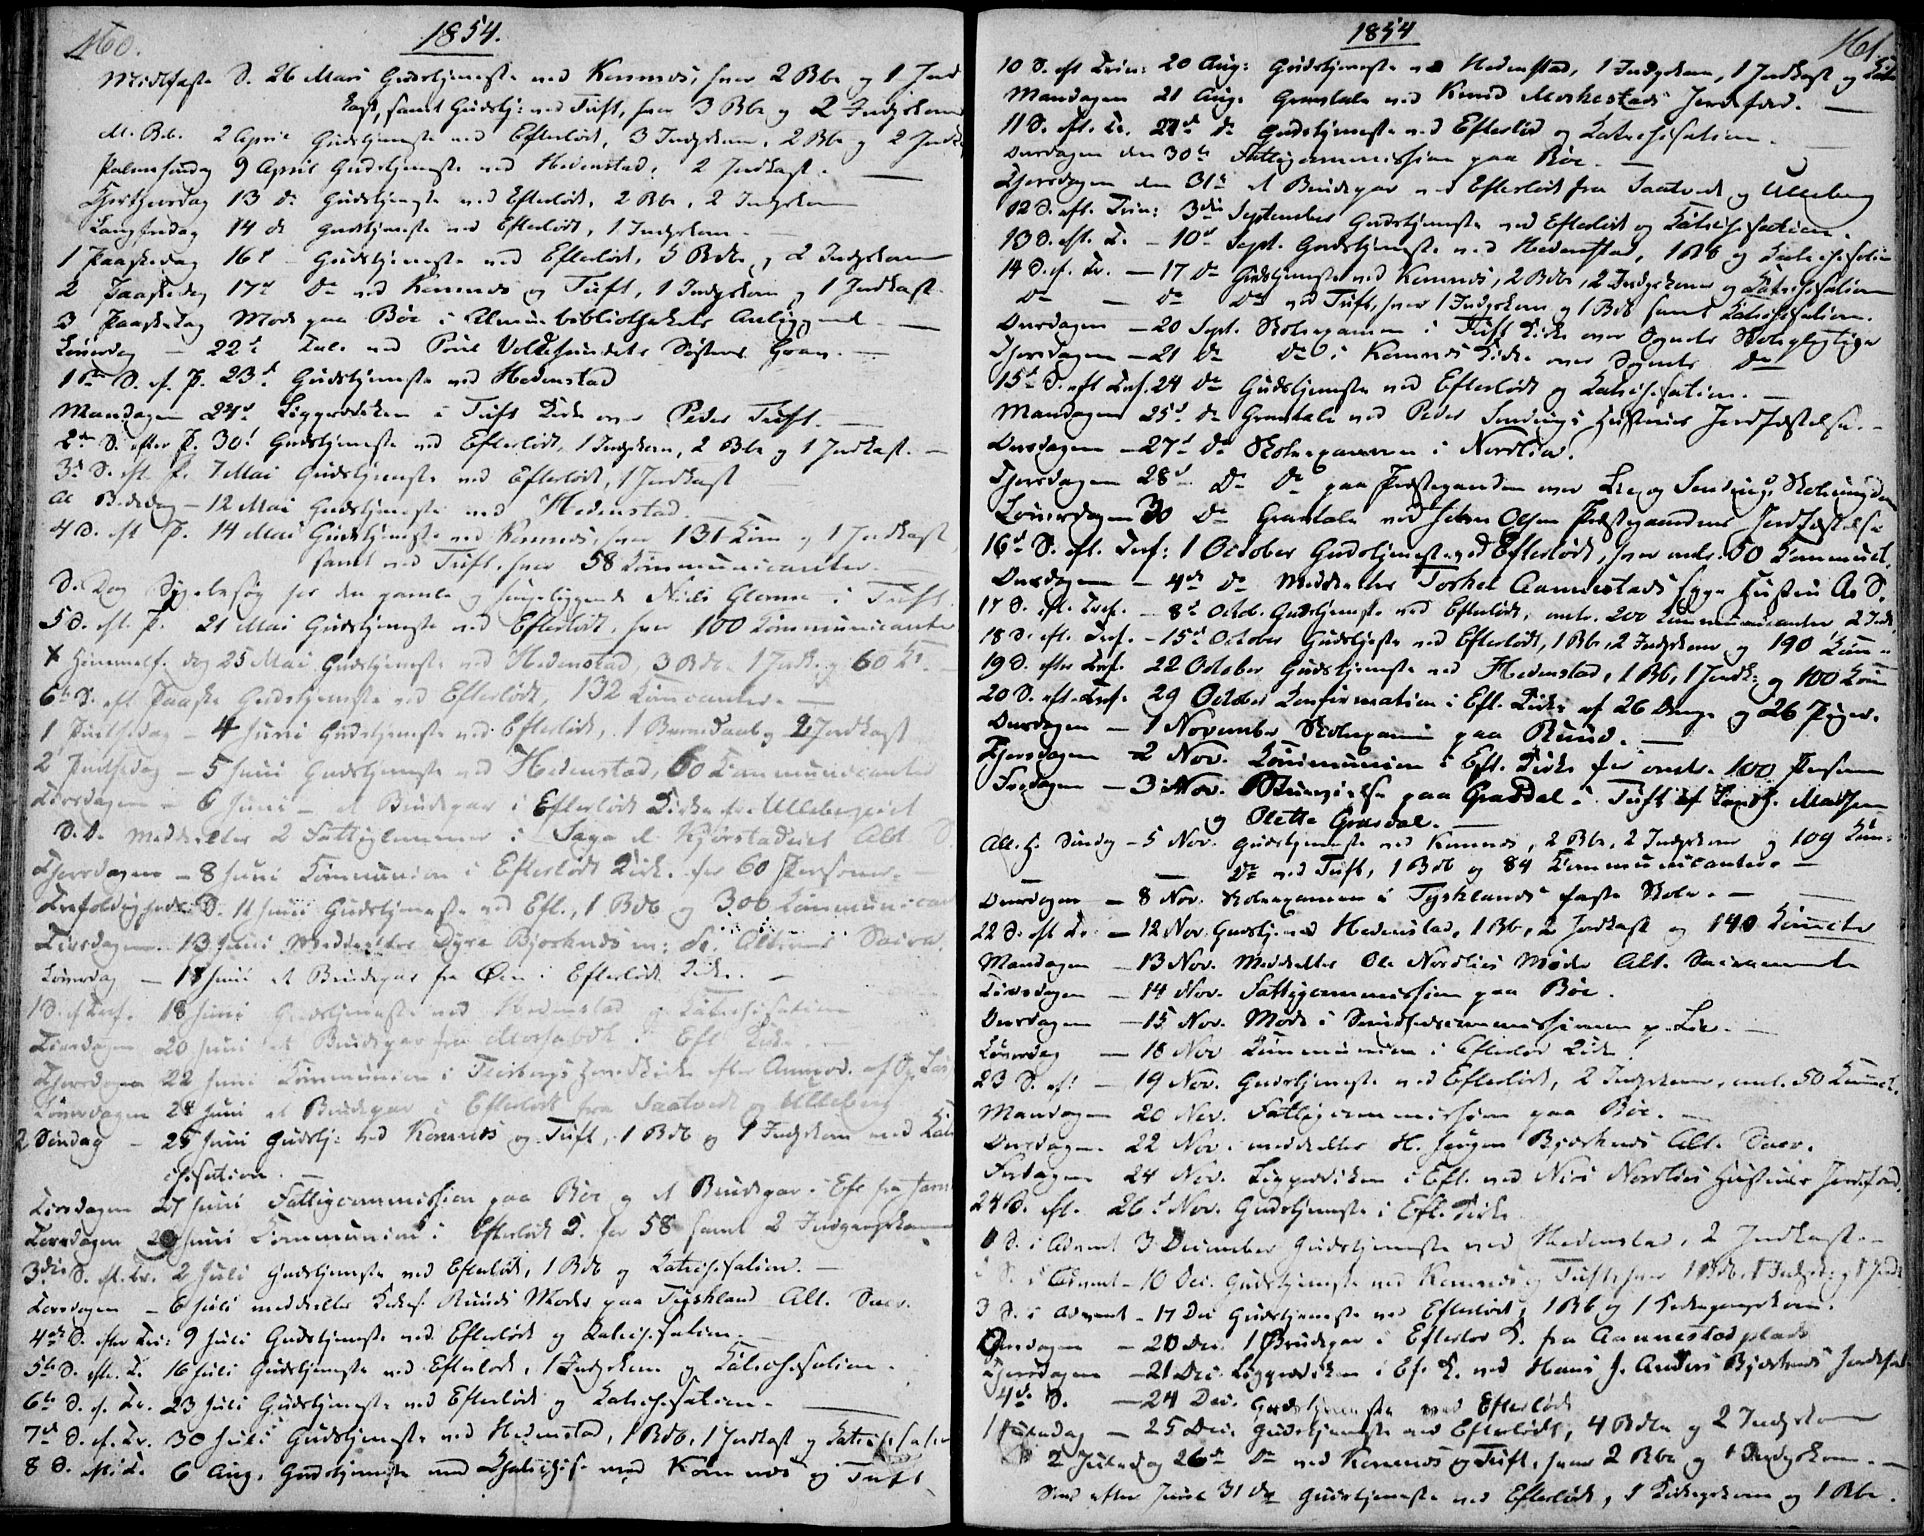 160.
1854.
Midtfaste S. 26 Mars Gudstjeneste ved Komnes, hvor 2 Bbr. og 1 Jord
kast, samt Gudstj: ved Tuft, hvor 3 Bbr og 2 Indgskone
M. B.d. 2 April Gudstjeneste ved Efterlødt, 3 Indgskon, 2 Bbr og 2 Jordk
Palmesøndag 9 April Gudstjeneste ved Hedenstad, 2 Jordkast.
Skjærthorsdag 13 do Gudstjeneste ved Efterlødt, 2 Bbr, 2 Indgskon
Langfredag 14 do Gudstjeneste ved Efterlødt, 1 Indgskon.
1 Paaskedag 16d Gudstjeneste ved Efterlødt, 5 Bdbr og 2 Indgskoner
2 Paaskedag 17d Do ved Komnes og Tuft, 1 Indgskon og 1 Jordkast.
3 Paaskedag Møde paa Böe i Almuebibliothekets Anliggende.
Løverdag – 22d Tale ved Poul Grav.
1ste S. ef. P. 23d Gudstjeneste ved Hedenstad
Mandagen 24d Ligprædiken i Tuft Kirke over Peder Tuft.
2den S. efter P. 30d Gudstjeneste ved Efterlødt, 1 Indgskon, 2 Bbr og 1 Jordkast.
3d S. eft. P. 7 Mai Gudstjeneste ved Efterlødt, 1 Jordkast
Al. B.dedag – 12 Mai Gudstjeneste ved Hedenstad.
4 S. eft P. 14 Mai Gudstjeneste ved Komnes, hvor 131 Kom og 1 Jordkast,
samt ved Tuft, hvor 58 Kommunicanter.
S. Dag Sygebesøg hos den gamle og sengeliggende Niels i Tuft.
5 S. eft. P. 21 Mai Gudstjeneste ved Efterlødt, hvor 100 Kommunicanter
X Himmelf. dag 25 Mai Gudstjeneste ved Hedenstad, 3 Bdbr 1 Jordk. og 60 K.
6te S. eft Paaske Gudstjeneste ved Efterlødt, 132 Komcanter.
1 Pintsedag – 4 Juni Gudstjeneste ved Efterlødt, 1 Barnedaab og 2 Jordkast
2 Pintsedag – 5 Juni Gudstjeneste ved Hedenstad, 60 Kommunicanter
Tirsdagen – 6 Juni – et Brudepar i Efterlødt Kirke fra Ullebergeiet
S. D. meddeeltes 2 Fattiglemmer i Saga et Kjørstadeiet Alt. S
Thorsdagen – 8 Juni Kommunion i Efterlødt Kirke for 60 Personer.
Trefoldigheds S. 11 Juni Gudstjeneste ved Eft., 1 Bdb og 306 Kommunican
Tirsdagen 13 Juni Meddeeltes Dyre Bjørknes m: fl. Altrens Sacra.
Løverdag – 1 Juni et Brudepar fra Øen i Efterlødt Kirke. –
1 S. ef Tref. 18 Juni Gudstjeneste ved Hedenstad og Katechisation
Tirsdagen 20 Juni et Brudepar fra i Eft Kirke. –
Thorsdagen 22 Juni Kommunion i Flesbergs Hovedkirke efter Anmod. af
Løverdagen 24 Juni et Brudepar i Efterlødt fra Saatvedt og Ulleberg
2 Søndag – 25 Juni Gudstj: ved Komnes og Tuft, 1 Bdb og 1 Indgskon med Kate
chisation. –
Tirsdagen 27 Juni Fattigcommission paa Böe og et Brudepar i Eft fra
Torsdagen 29 Juni Kommunion i Efterlødt K. for 58 samt 2 Indgangskoner
3die S. eft. Tr. 2 Juli Gudstjeneste ved Efterlødt, 1 Bdb og Katechisation. –
Torsdagen – 6 Juli meddeeltes Ruuds Moder paa Tyskland Alt. Sacr.
4de S. efter Tri: 9 Juli Gudstjeneste ved Efterlødt og Katechisation. –
5te S. eft. T. 16 Juli Gudstjeneste ved Efterlødt, 1 Indgskon og Katechisation.
6te S. ef. Tr. 23 Juli Gudstjeneste ved Efterlødt og Katechisation.
7de S. ef. Tr. 30 Juli Gudstjeneste ved Hedenstad, 1 Bdb, 1 Jordkast og Katechisation
8 S. eft. T. 6 Aug. Gudstjeneste med Chatechis. ved Komnes og Tuft
1854
161.
10 S. eft Trin: 20 Aug: Gudstjeneste ved Hedenstad, 1 Indgskon, 1 Jordkast og Kate
Mandagen 21 Aug. Gravtale ved Knud Jordefærd.
11 S. eft. Tr. 27de do Gudstjeneste ved Efterlød og Katechisation.
Onsdagen den 30te Fattigcommission paa Böe.
Thorsdagen den 31te et Brudepar ved Efterlødt fra Saatvedt og Ulleberg
12 S. eft. Trin: 3die September Gudstjeneste ved Efterlødt og Katechisation.
13 S. eft. T. – 10d Sept. Gudstjeneste ved Hedenstad, 1 Bb og Katechisation
14 S. ef. Tr. – 17 do Gudstjeneste ved Komnes, 2 Bdbr, 2 Indgskoner og Katechisation
Do – do Do ved Tuft, hvor 1 Indgskon og 1 Bdb samt Katechisation.
Onsdagen – 20 Sept. Skoleexamen i Tuft Kirke over Sognets Skolepligtige
Thorsdagen – 21 do Do i Komnes Kirke over Sognets Do
15d S. eft Tref. 24 do Gudstjeneste ved Efterlødt og Katechisation. –
Mandagen 25d do Gravtale ved Peder Hustrues Jordfæstelse. –
Onsdagen – 27d do Skoleexamen i Nordlia.
Thorsdagen 28d do Do paa Præstegaarden over Lie og Skoleungdom
Løverdagen 30 do Gravtale ved Olsen Præstegaardens Jordfæstelse
16d S. eft. Tref: 1 October Gudstjeneste ved Efterlødt, hvor omtr. 50 Communict.
Onsdagen – 4de do Meddeeltes Torkel Aannestads syge Hustru A. S.
17 S. eft. Tref. – 8d Octob. Gudstjeneste ved Efterlødt, omtr. 200 Kommunicanter 2 Indk
18 S. eft. Tref. – 15d October Gudstjeneste ved Efterlødt, 1 Bb, 2 Indgskone og 190 Kom –
19 S. efter Tref. 22 October Gudstjeneste ved Hedenstad, 1 Bb, 1 Jordk: og 100 Kom
20 S. eft. Tref. 29 October Konfirmation i Eft. Kirke af 26 Drenge og 26 Piger.
Onsdagen – 1 November Skoleexamen paa Ruud. –
Thorsdagen – 2 Nov. Kommunion i Eft. Kirke for omtr. 100 Personer
Fredagen – 3 Nov. paa Grasdal i Tuft af Madsen
og Olette Grasdal. –
All. H. Søndag – 5 Nov. Gudstjeneste ved Komnes, 2 Bbr, 2 Indgskone og 109 Kom:
Do ved Tuft, 1 Bdb og 84 Kommunicanter –
Onsdagen – 8 Nov. Skoleexamen i Tysklands faste Skole. –
22 S. eft Tr. – 12 Nov. Gudstj. ved Hedenstad, 1 Bb, 2 Jordkast og 140 Komctr
Mandagen – 13 Nov. Meddeeltes Ole Nordlies Moder Alt. Sacramente
Tirsdagen – 14 Nov. Fattigcommission paa Böe.
Onsdagen – 15 Nov. Møde i Sundhedscommissionen p. Lie. –
Løverdag – 18 Nov Kommunion i Efterlød Kirke
23 S. ef: – 19 Nov. Gudstjeneste ved Efterlødt, 2 Indgskone, omt. 50 Komct.
Mandagen 20 Nov. Fattigcommission paa Böe. –
Onsdagen. 22 Nov. meddeeltes H. Jørgen Bjørknes Alt. Sacr.
Fredagen 24 Nov. Ligprædiken i Eft. ved Nordlies Hustrues Jordfærd.
24 S. eft. 26d Nov. Gudstjeneste i Eft. Kirke
1 S. i Advent 3 December Gudstjeneste ved Hedenstad, 2 Jordkast. –
S. i Advent – 10 Dec. Gudstjeneste ved Komnes og Tuft, hvor 1 Bdb, 1 Indgsk: og 1 Jordk
3 S. i Advent – 17 Dec Gudstjeneste ved Efterlødt, 1 Bb og 1 Kirkegangskone.
Onsdagen – 20 Dec. 1 Brudepar i Efterlød K. fra Aannestadplads
Thorsdagen – 21 Dec. Ligprædiken i Ef. K. ved Hans J. Anders Bjørknes Jordefærd
4de S. – 24 Dec. Gudstjeneste ved Efterlødt
1 Juledag – 25 Dec. Gudstjeneste ved Efterlødt, 4 Bdbr og 2 Indgskone
2 Juledag 26de Do ved Komnes og Tuft, hvor 2 Bbr og 1 Indgskon. –
Sønd efter Juul 31 do Gudstjeneste ved Efterlødt, 1 Kirkegskone og 1 Bbr.